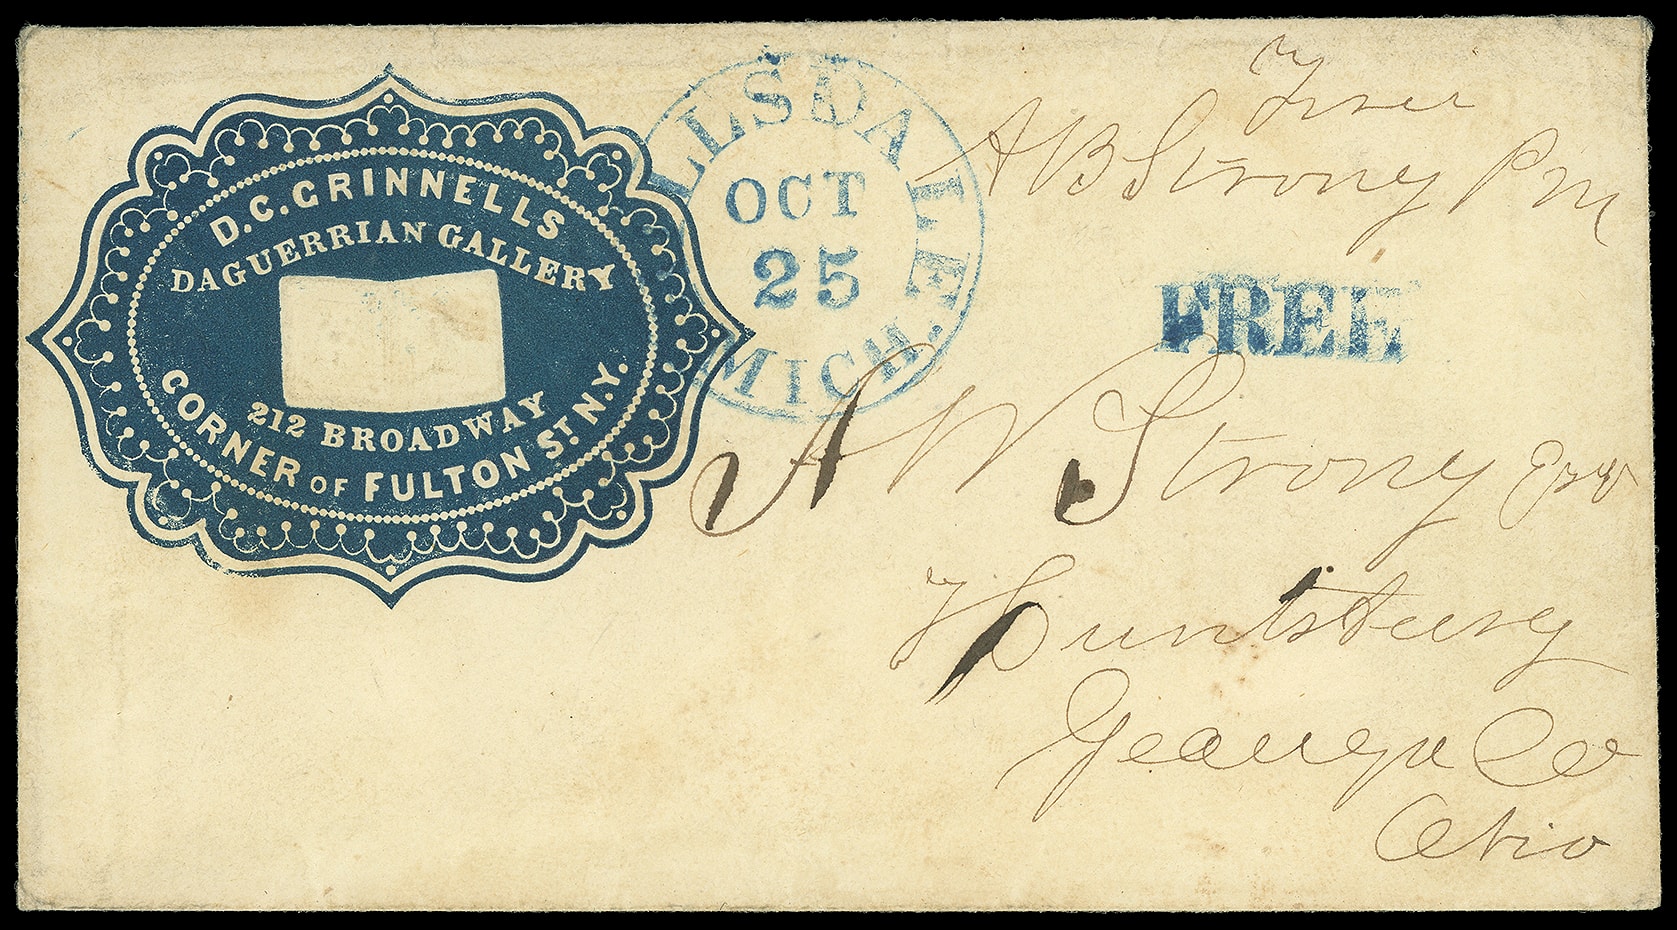 D.C. GRINNELLS
DAGUERRIAN GALLERY
212 BROADWAY
CORNER OF FULTON ST. N.Y.
LLSDALE
OCT
25
MICH.
Free
A B Strong P M
FREE
A W Strong Esq
Huntsburg
Geauga Co
Ohio